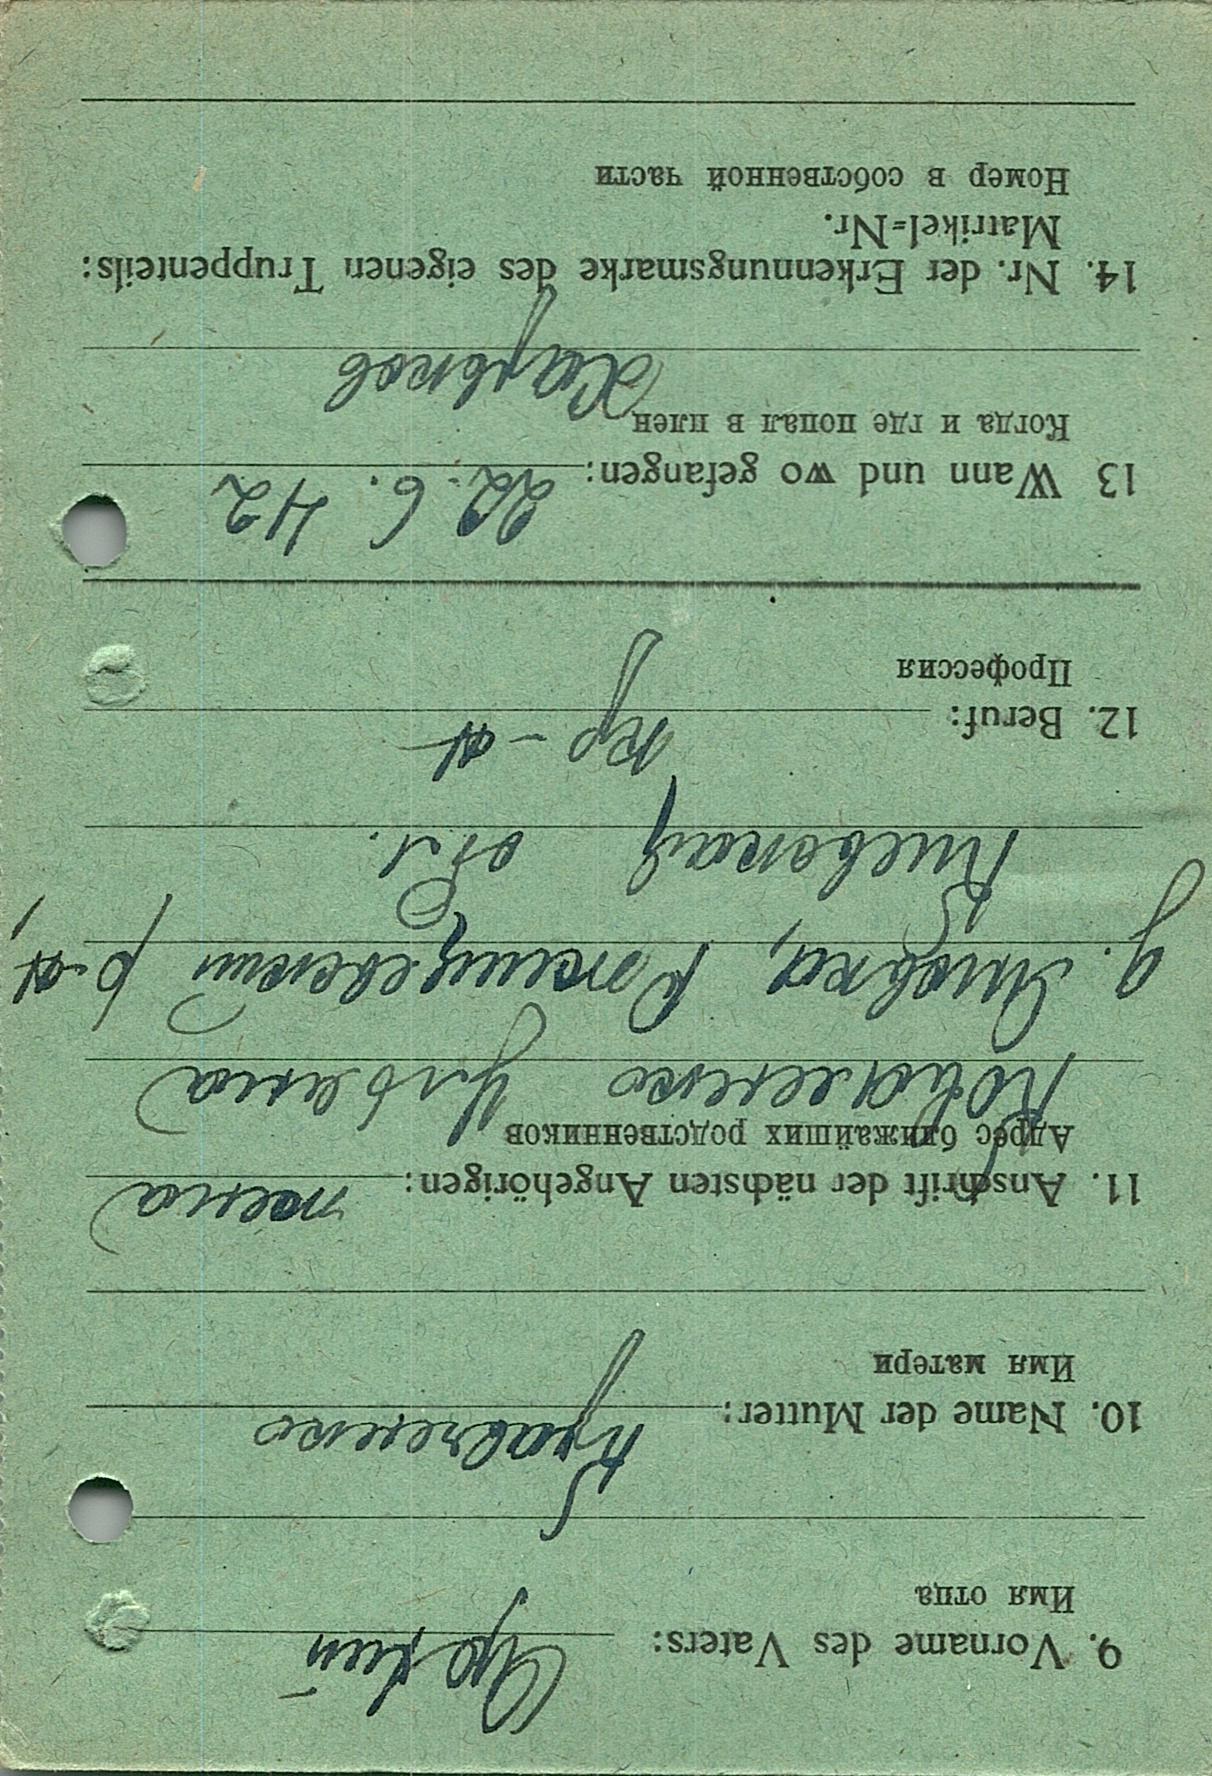 9. Vorname des Vaters:
Имя отца
10. Name der Mutter: Кравченко
Имя матери
11. Anschrift der nächsten Angehörigen: жена
Адрес ближайших родственников
Коваленко Ульяна
д. Ржищевский р-н,
Киевская обл.
12. Beruf: кр-н
Профессия
13 Wann und wo gefangen: 22. 6. 42
Когда и где попал в плен
Харьков
14. Nr. der Erkennungsmarke des eigenen Truppenteils:
Matrikel=Nr.
Номер в собственной части